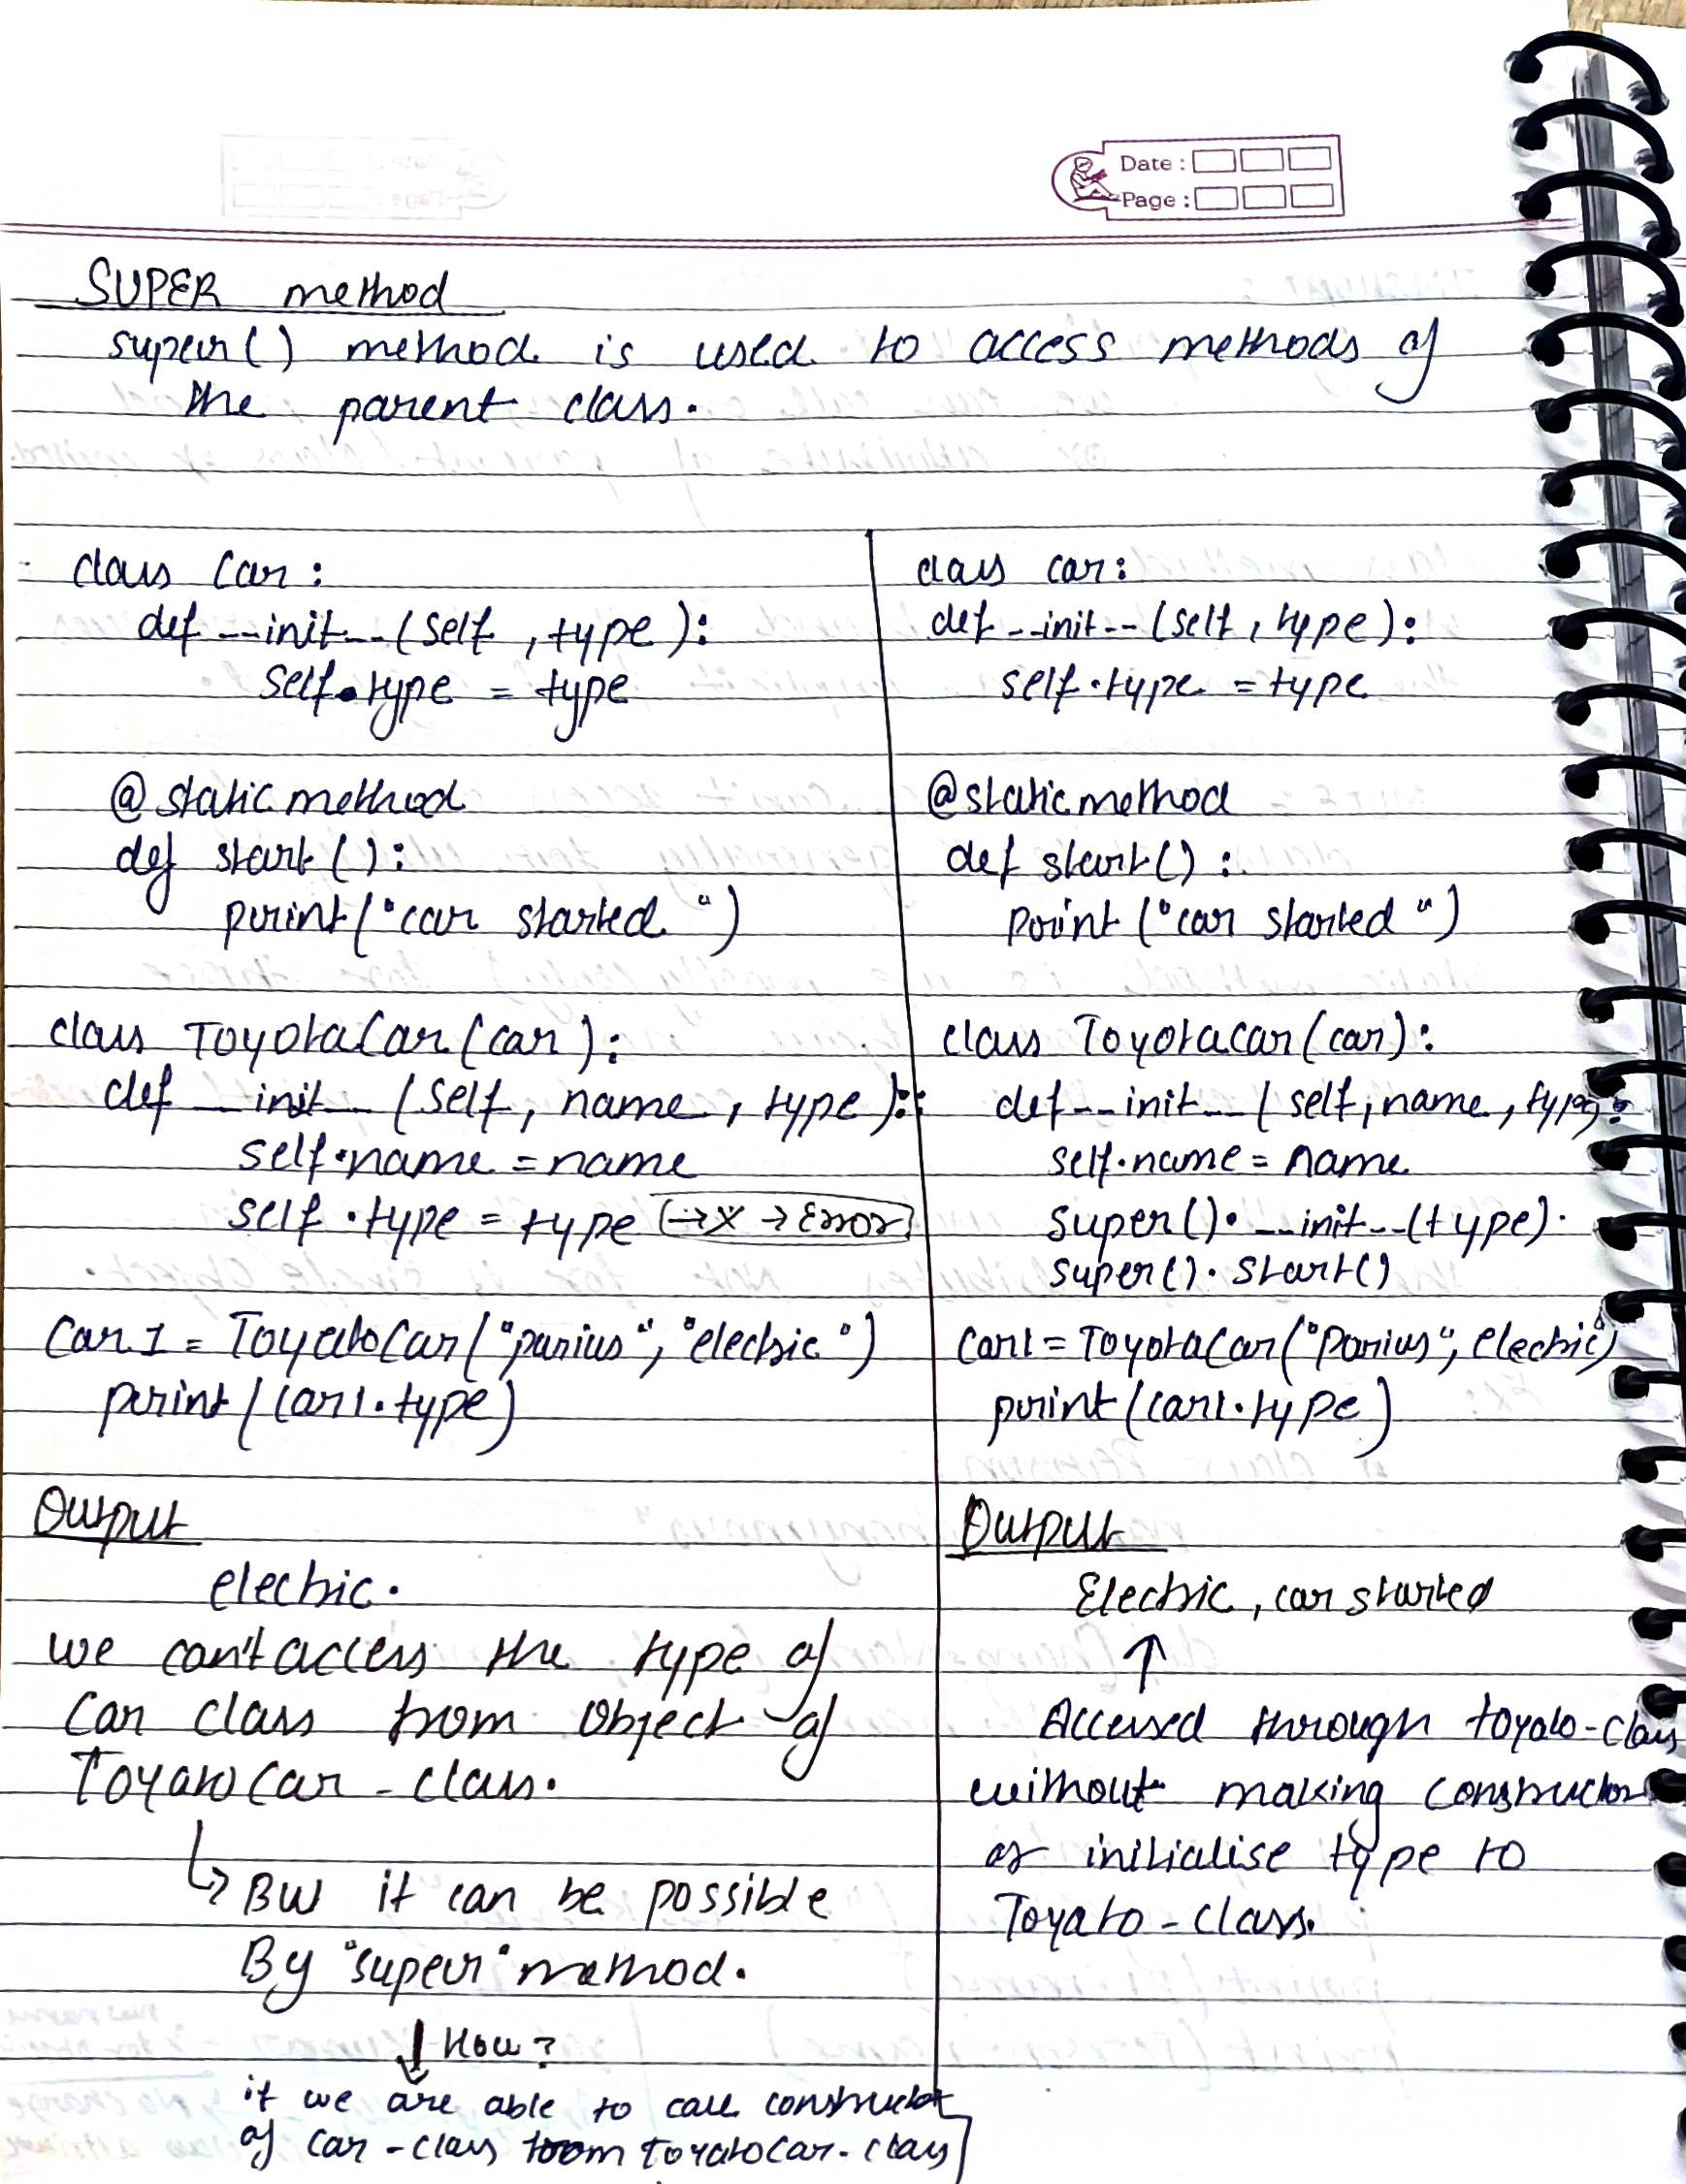 Date :
Page :
SUPER method
super() method is used to access methods of
the parent class.
class Car :
def __init__(self , type ):
self.type = type
@staticmethod
def start ():
print("car started ")
class ToyotaCar (car ):
def __init__ (self, name , type ):
self.name = name
self .type = type →X → Error
Car1 = ToyatoCar ("prius", "electric")
print (car1.type)
Output
electric.
we can't access the type of
Car class from object of
ToyatoCar - class.
↳ But it can be possible
By "super" method.
↓ How ?
if we are able to call constructor
of car - class from ToyatoCar - class
class car:
def __init__ (self , type ):
self.type = type
@staticmethod
def start() :
print ("car started ")
class Toyotacar (car):
def __init__ ( self, name , type):
self.name = name
super(). __init__(type).
super(). start()
Car1 = ToyotaCar ("Prius", electric)
print (car1.type )
Output
Electric , car started
↑
Accessed through toyato-class
without making constructor
or initialise type to
Toyato - class.